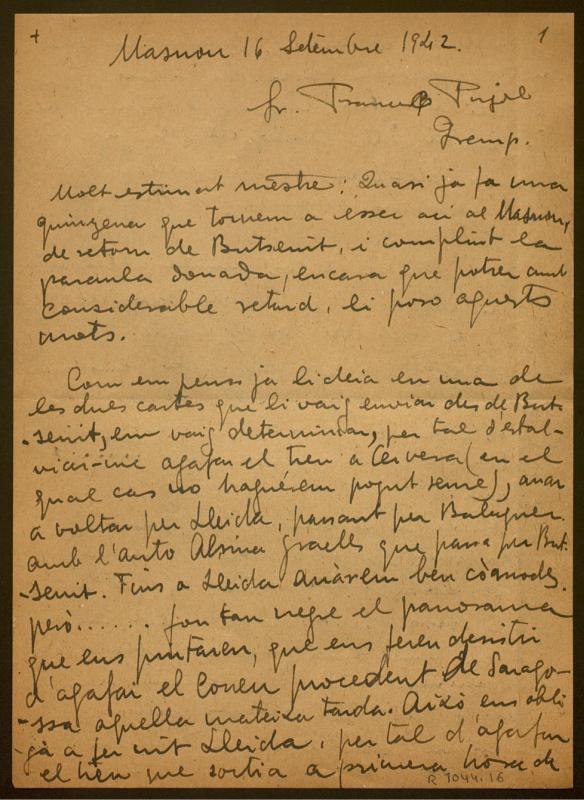 + 1
Masnou 16 Setembre 1942.
Sr. Francesc Pujol
Tremp.
Molt estimat mestre: Quasi ja fa una
quinzena que tornem a esser aci al Masnou,
de retorn de Butsenit, i complint la
paraula donada, encara que potser amb
considerable retard, li poso aquests
mots.
Com em penso ja li deia en una de
les dues cartes que li vaig enviar des de But-
-senit, em vaig determinar, per tal d'estal-
viar-me agafar el tren a Cervera (en el
qual cas no haguérem pogut seure), anar
a voltar per Lleida, passant per Balaguer
amb l'auto Alsina Graells que passa per But-
-senit. Fins a Lleida anàrem ben còmodes,
però...... fou tan negre el panorama
que ens pintaren, que ens feren desistir
d'agafar el Correu procedent de Sarago-
-ssa aquella mateixa tarda. Això ens obli-
gà a fer nit Lleida, per tal d'agafar
el tren que sortia a primera hora de
R 1044.16